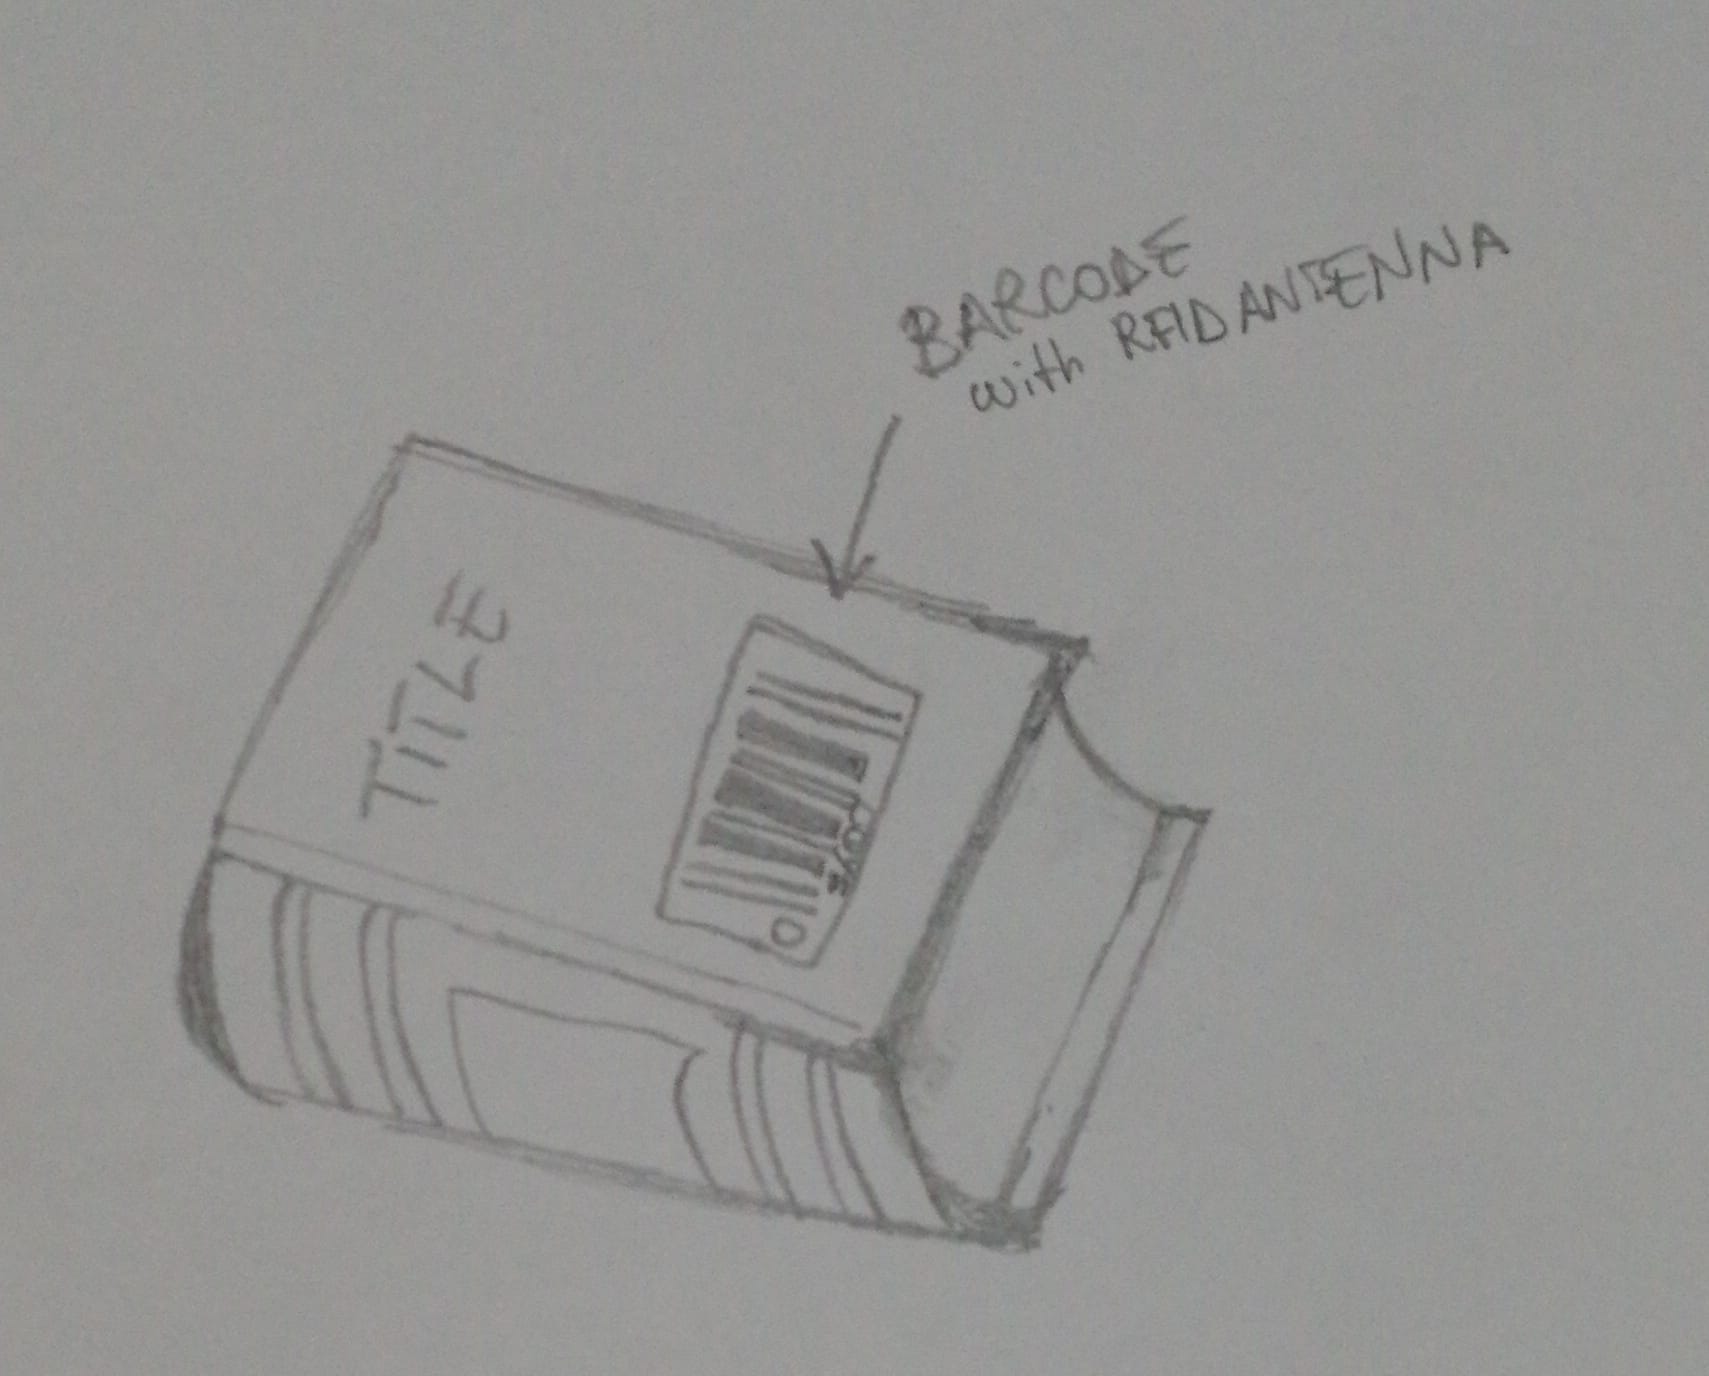 BARCODE
with RFID ANTENNA
TITLE